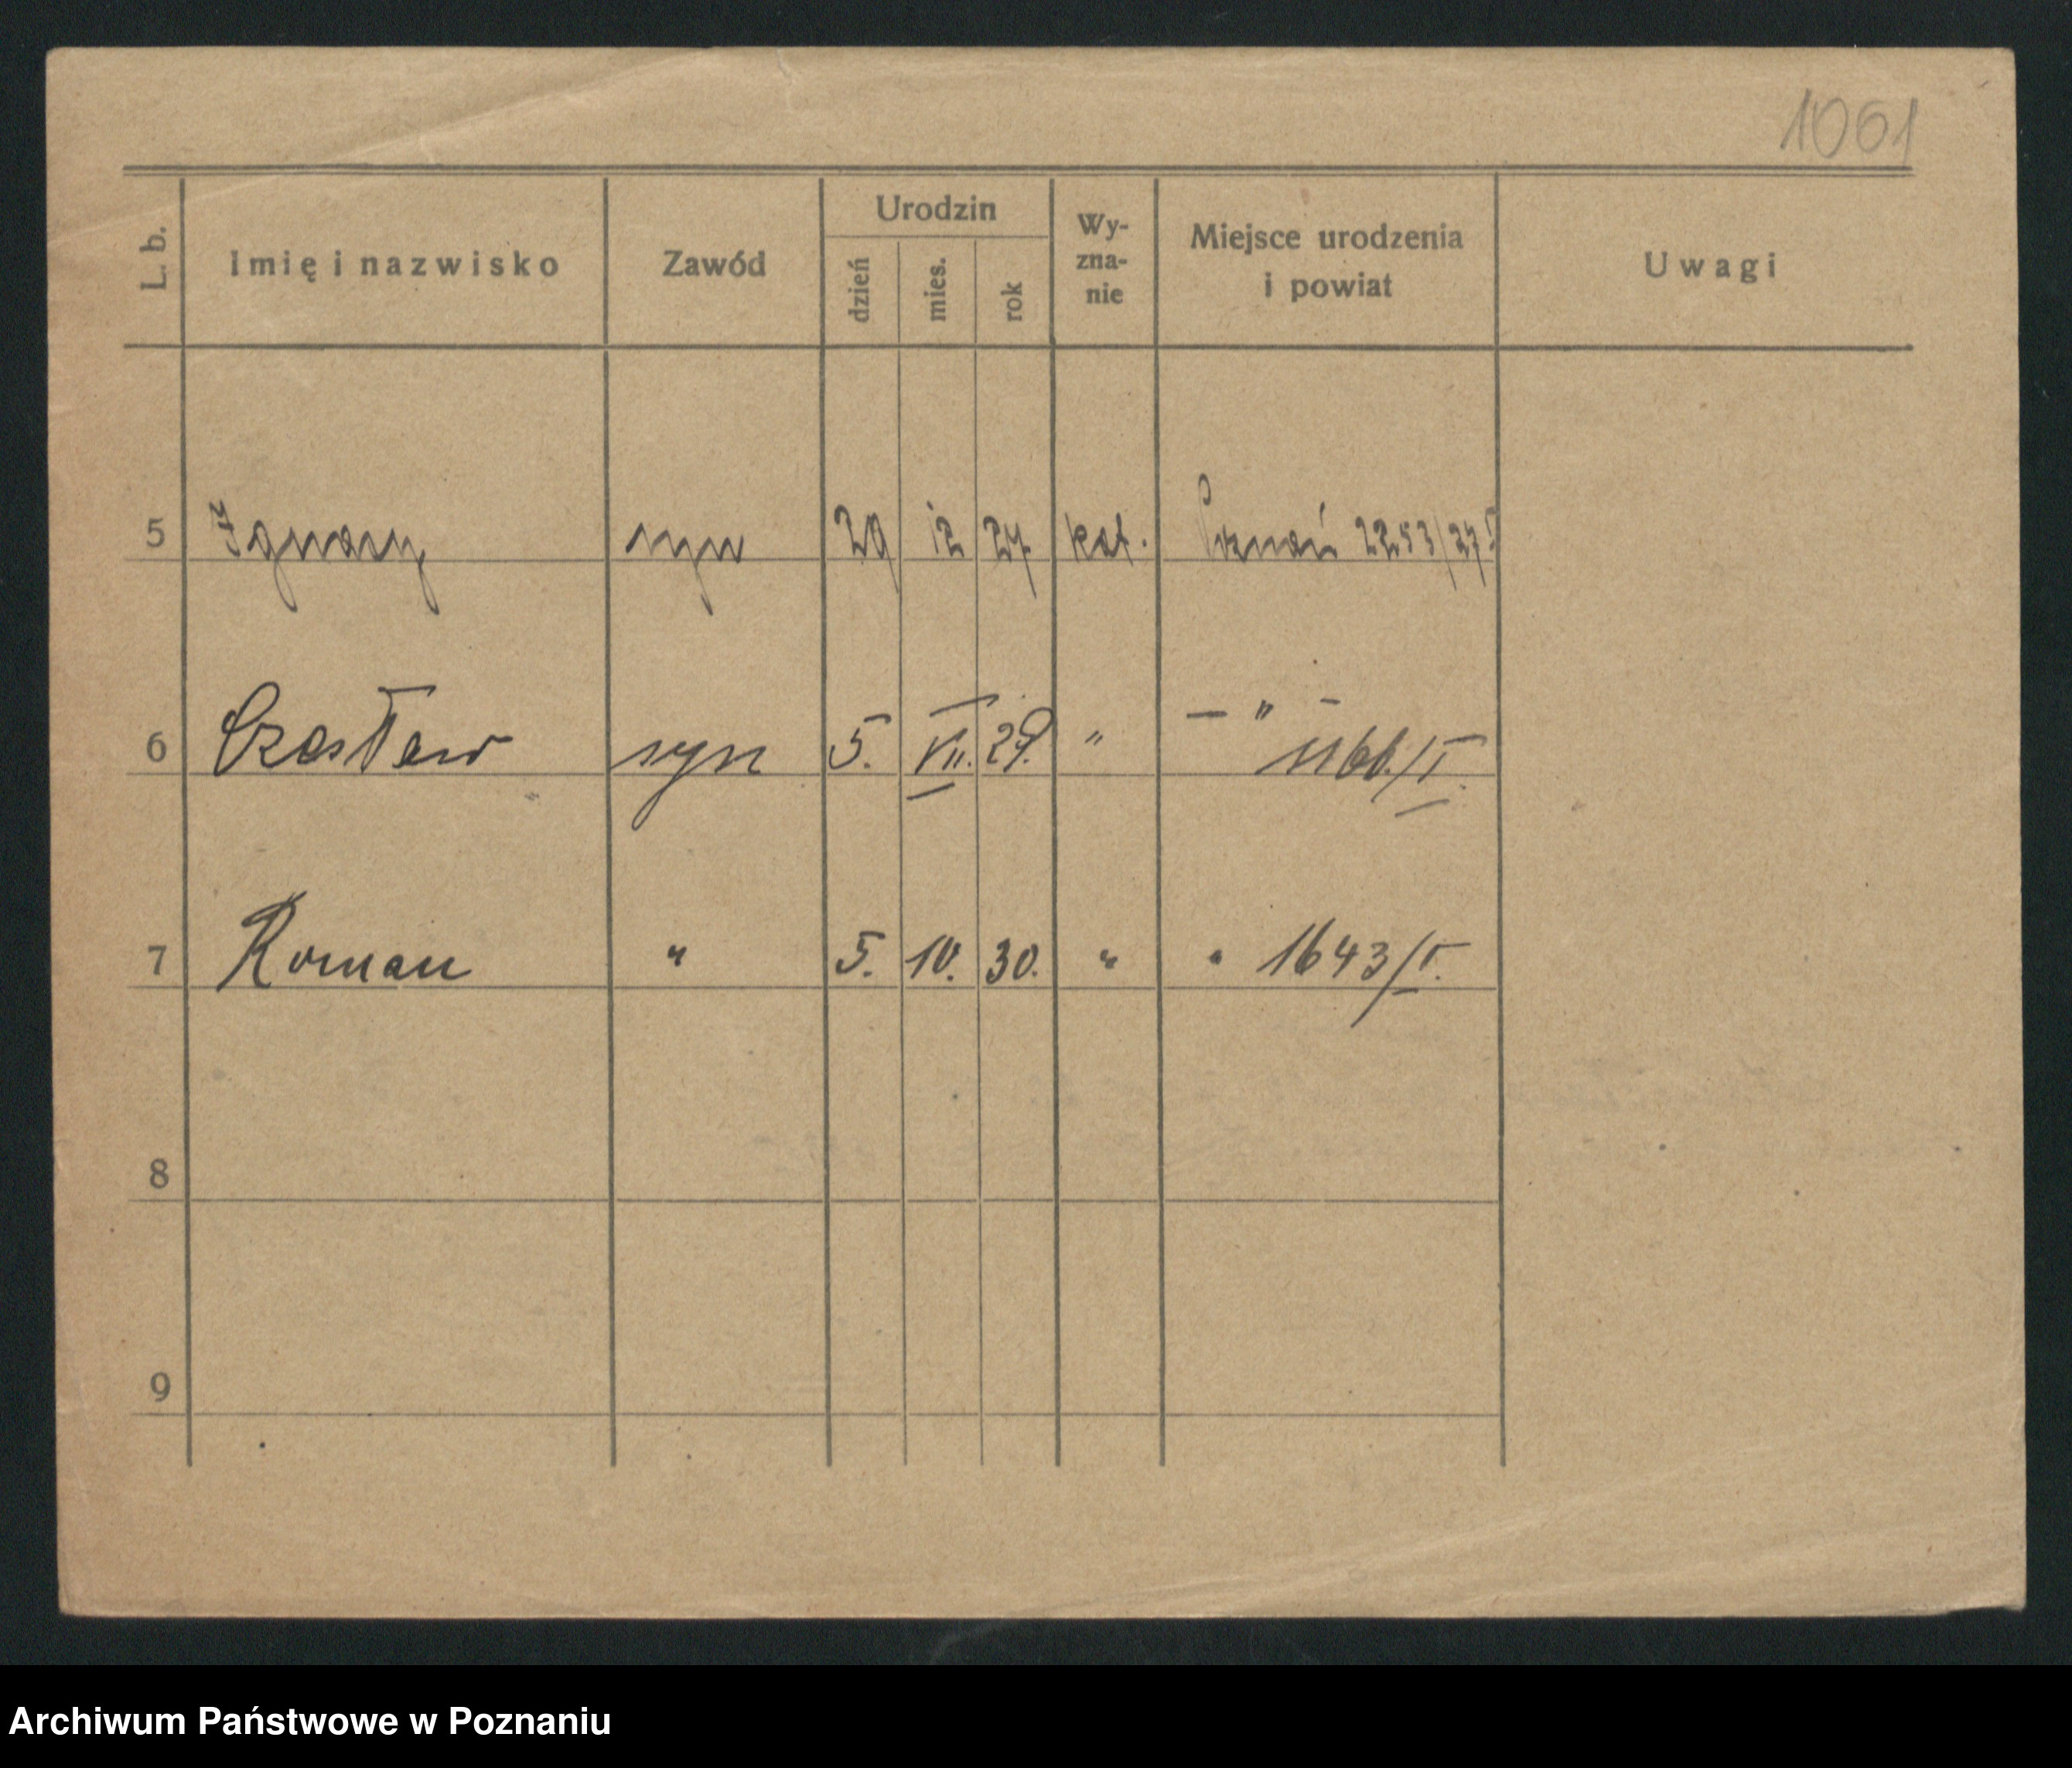 1061
L. b. Imię i nazwisko Zawód Urodzin dzień mies. rok Wy-zna-nie Miejsce urodzenia i powiat Uwagi
5 Ignacy syn 29 12 27 kat. Poznań 2253/27
6 Czesław syn 5. VII. 29. " – " – 1166/I.
7 Roman " 5. 10. 30. " " 1643/I.
8
9
Archiwum Państwowe w Poznaniu